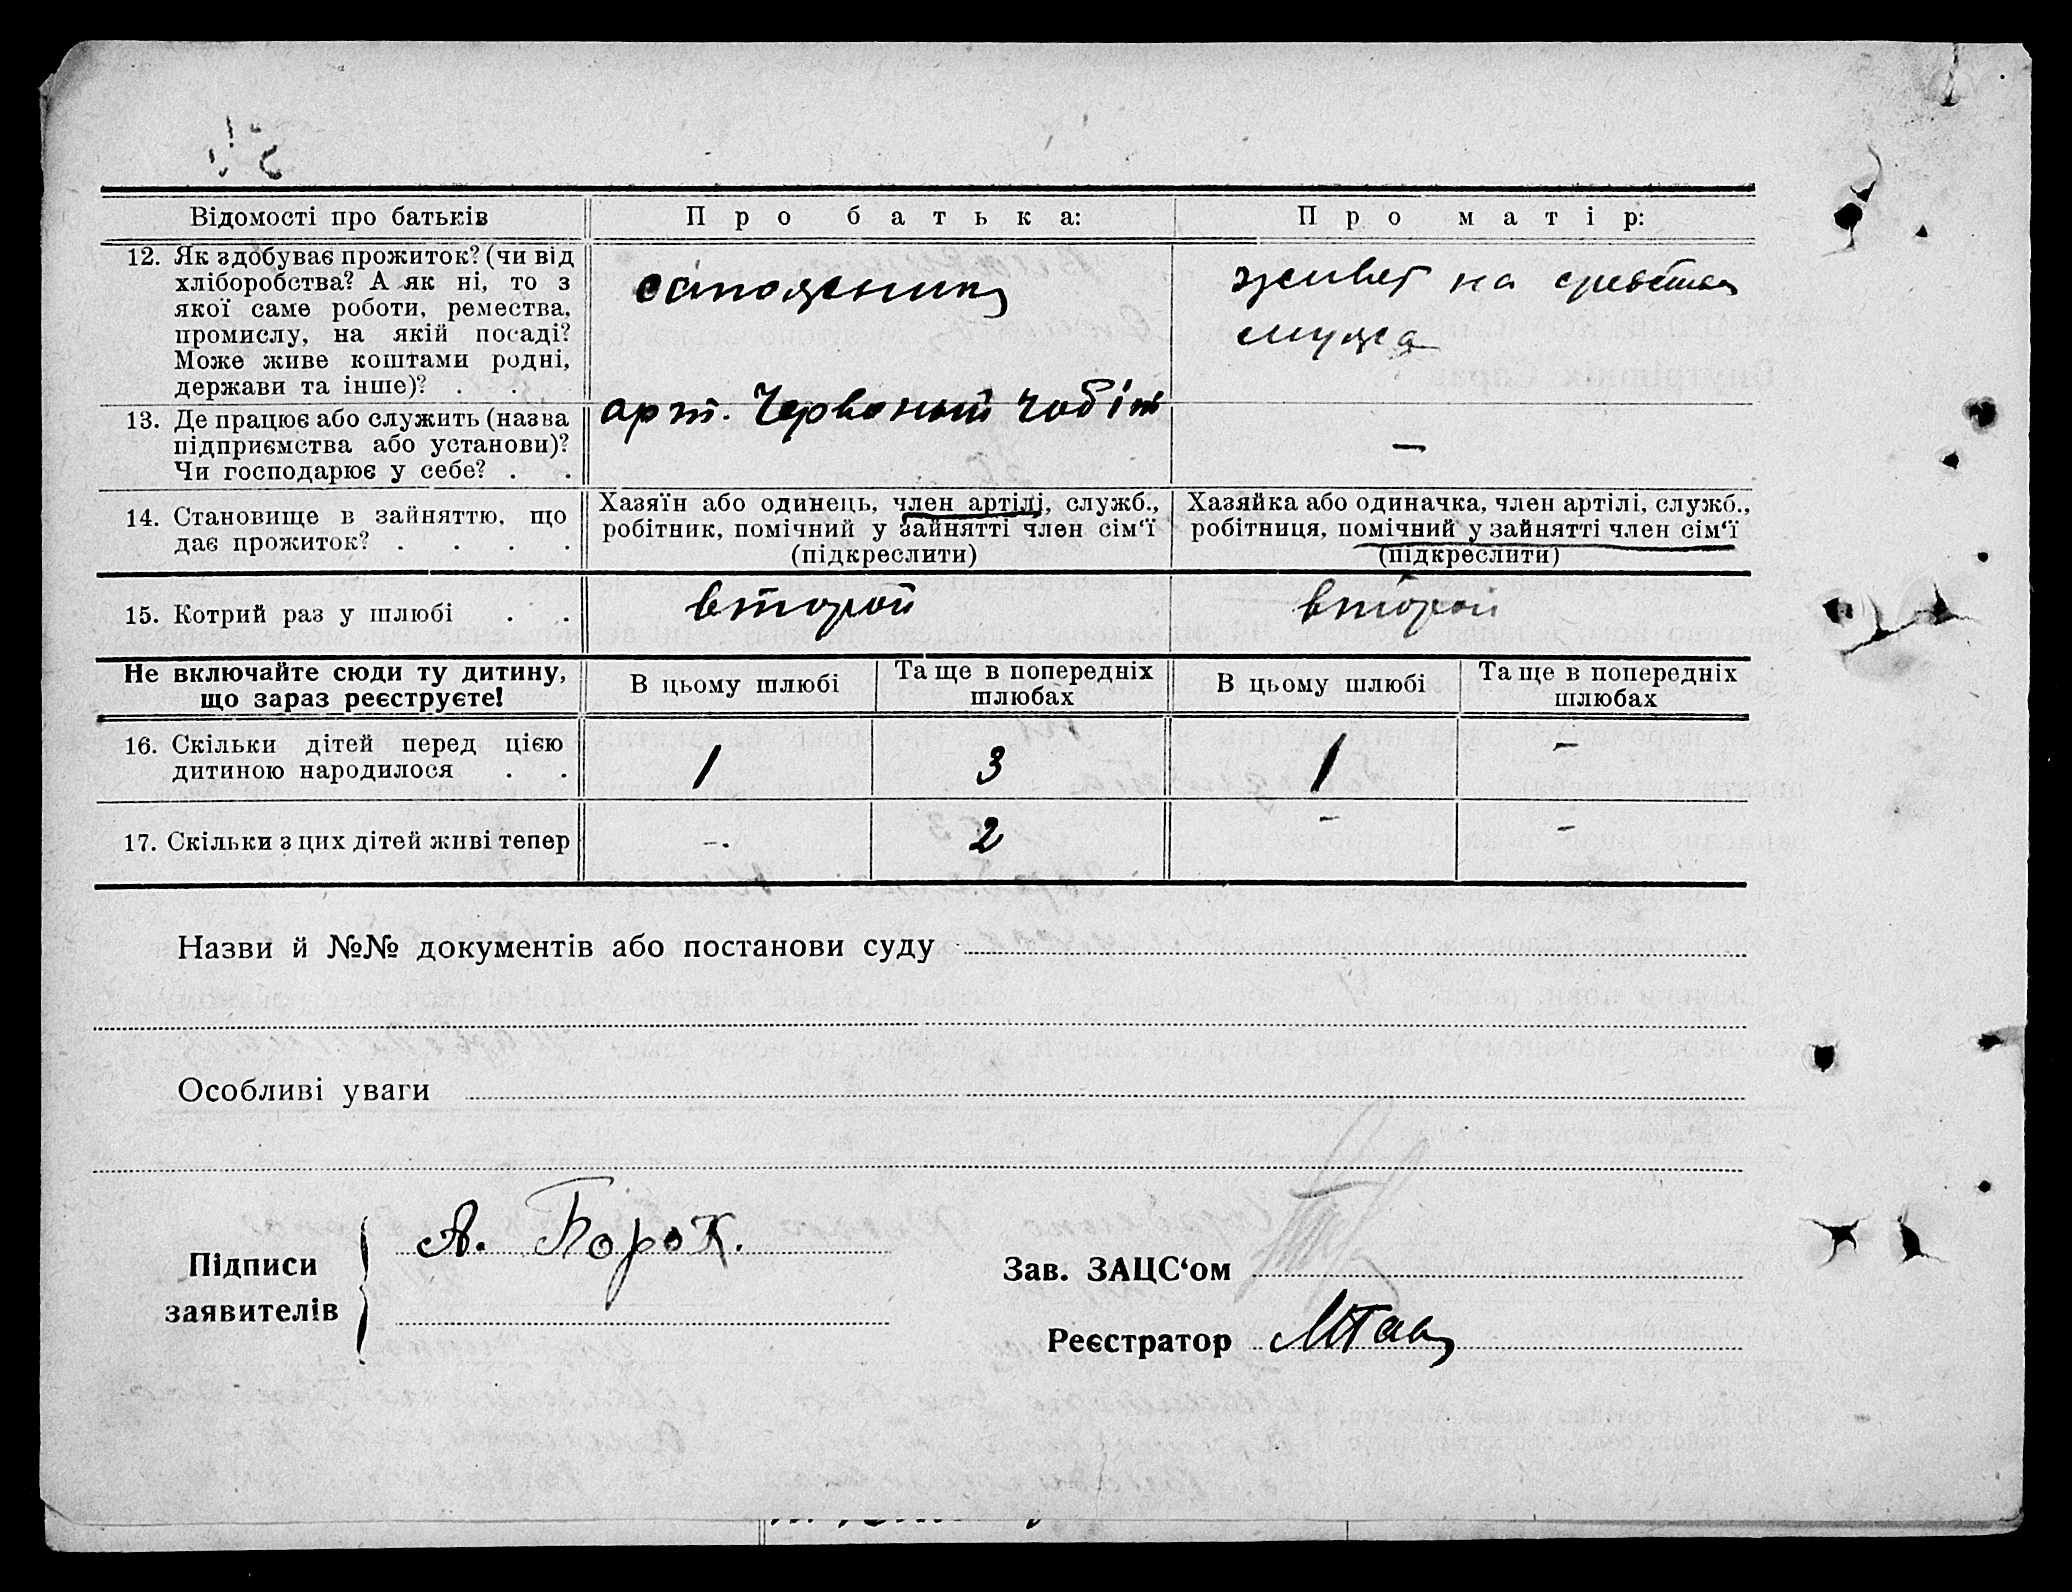 Відомості про батьків
Про батька:
Про матір:
12. Як здобуває прожиток? (чи від
хліборобства? А як ні, то з
якої саме роботи, ремества,
промислу, на якій посаді?
Може живе коштами родні,
держави та інше)? . .
сапожник
живет на средства
мужа
13. Де працює або служить (назва
підприємства або установи)?
Чи господарює у себе? . .
арт. Червоный Чобіт
—
14. Становище в зайняттю, що
дає прожиток? . . . .
Хазяїн або одинець, член артілі, служб.,
робітник, помічний у зайнятті член сім‘ї
(підкреслити)
Хазяйка або одиначка, член артілі, служб.,
робітниця, помічний у зайнятті член сім‘ї
(підкреслити)
15. Котрий раз у шлюбі . .
второй
второй
Не включайте сюди ту дитину,
що зараз реєструєте!
В цьому шлюбі
Та ще в попередніх
шлюбах
В цьому шлюбі
Та ще в попередніх
шлюбах
16. Скільки дітей перед цією
дитиною народилося . .
1
3
1
—
17. Скільки з цих дітей живі тепер
—.
2
—
—
Назви й №№ документів або постанови суду
Особливі уваги
Підписи
заявителів
А. Борок.
Зав. ЗАЦС‘ом
Реєстратор